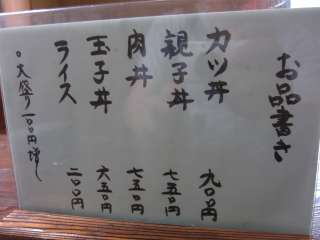 お品書き
カツ丼 九〇〇円
親子丼 七五〇円
肉丼 七五〇円
玉子丼 六五〇円
ライス 二〇〇円
。大盛り一〇〇円増し